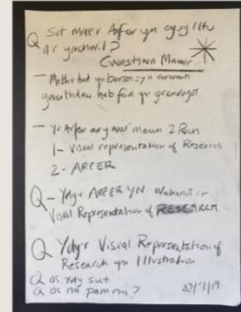 Q Sut mae'r Arfer yn
Ar ymchwil?
Cwestiwn Mawr.
- Methu bod yn berson sy'n
gweithdaw heb fod yn greadigol
- Yr Arfer ar y mewn 2 Ran
1- Visual representation of Research
2- ARFER
Q- Ydy'r ARFER YN
Visual Representation of RESEARCH
Q Ydy'r Visual Representation of
Research yn Illustration
Q os ydy sut
Q os na pam ni?
22/1/19